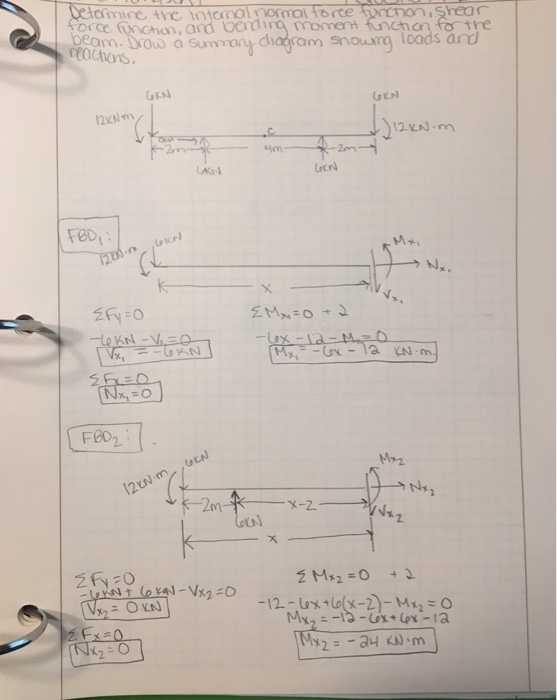 Determine the internal normal force function, shear
force function, and bending moment function for the
beam. Draw a summary diagram showing loads and
reactions.
6KN 6KN
12KNm 12KN·m
C
2m 4m 2m
6KN 6KN
FBD₁:
12KN·m 6KN Mx₁
Nx₁
x Vx₁
ΣFy=0 ΣMx₁=0
-6KN-Vx₁=0 -6x-12-Mx₁=0
Vx₁=-6KN Mx₁=-6x-12 KN·m
ΣFx=0
Nx₁=0
FBD₂:
12KN·m 6KN Mx2
Nx2
2m x-2 Vx2
6KN
x
ΣFy=0 ΣMx2=0
-6KN+6KN-Vx2=0 -12-6x+6(x-2)-Mx2=0
Vx2=0KN Mx2=-12-6x+6x-12
ΣFx=0 Mx2=-24 KN·m
Nx2=0